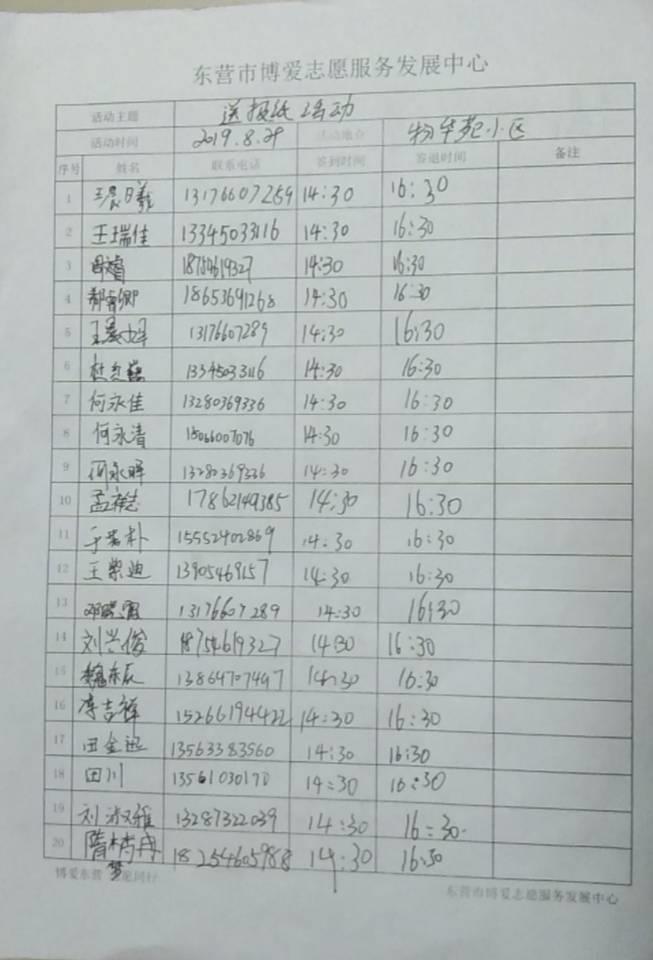 东营市博爱志愿服务发展中心
活动主题 送报纸活动
活动时间 2019.8.29 活动地点 物华苑小区
序号 姓名 联系电话 签到时间 签退时间 备注
1 王晨曦 13176607289 14:30 16:30
2 王瑞佳 13345033116 14:30 16:30
3 18754619327 14:30 16:30
4 18653691268 14:30 16:30
5 13176607289 14:30 16:30
6 13345033116 14:30 16:30
7 何永佳 13280369336 14:30 16:30
8 何永清 15066007076 14:30 16:30
9 何永晖 13280369336 14:30 16:30
10 孟祥志 17862149385 14:30 16:30
11 于若朴 15552402869 14:30 16:30
12 王崇迪 13905469157 14:30 16:30
13 13176607289 14:30 16:30
14 刘兴俊 18754619327 14:30 16:30
15 魏东辰 13864707497 14:30 16:30
16 李吉祥 15266194422 14:30 16:30
17 田金迅 13563383560 14:30 16:30
18 田川 13561030170 14:30 16:30
19 刘淑雅 13287322039 14:30 16:30
20 隋 18254605988 14:30 16:30
博爱东营 同行
东营市博爱志愿服务发展中心